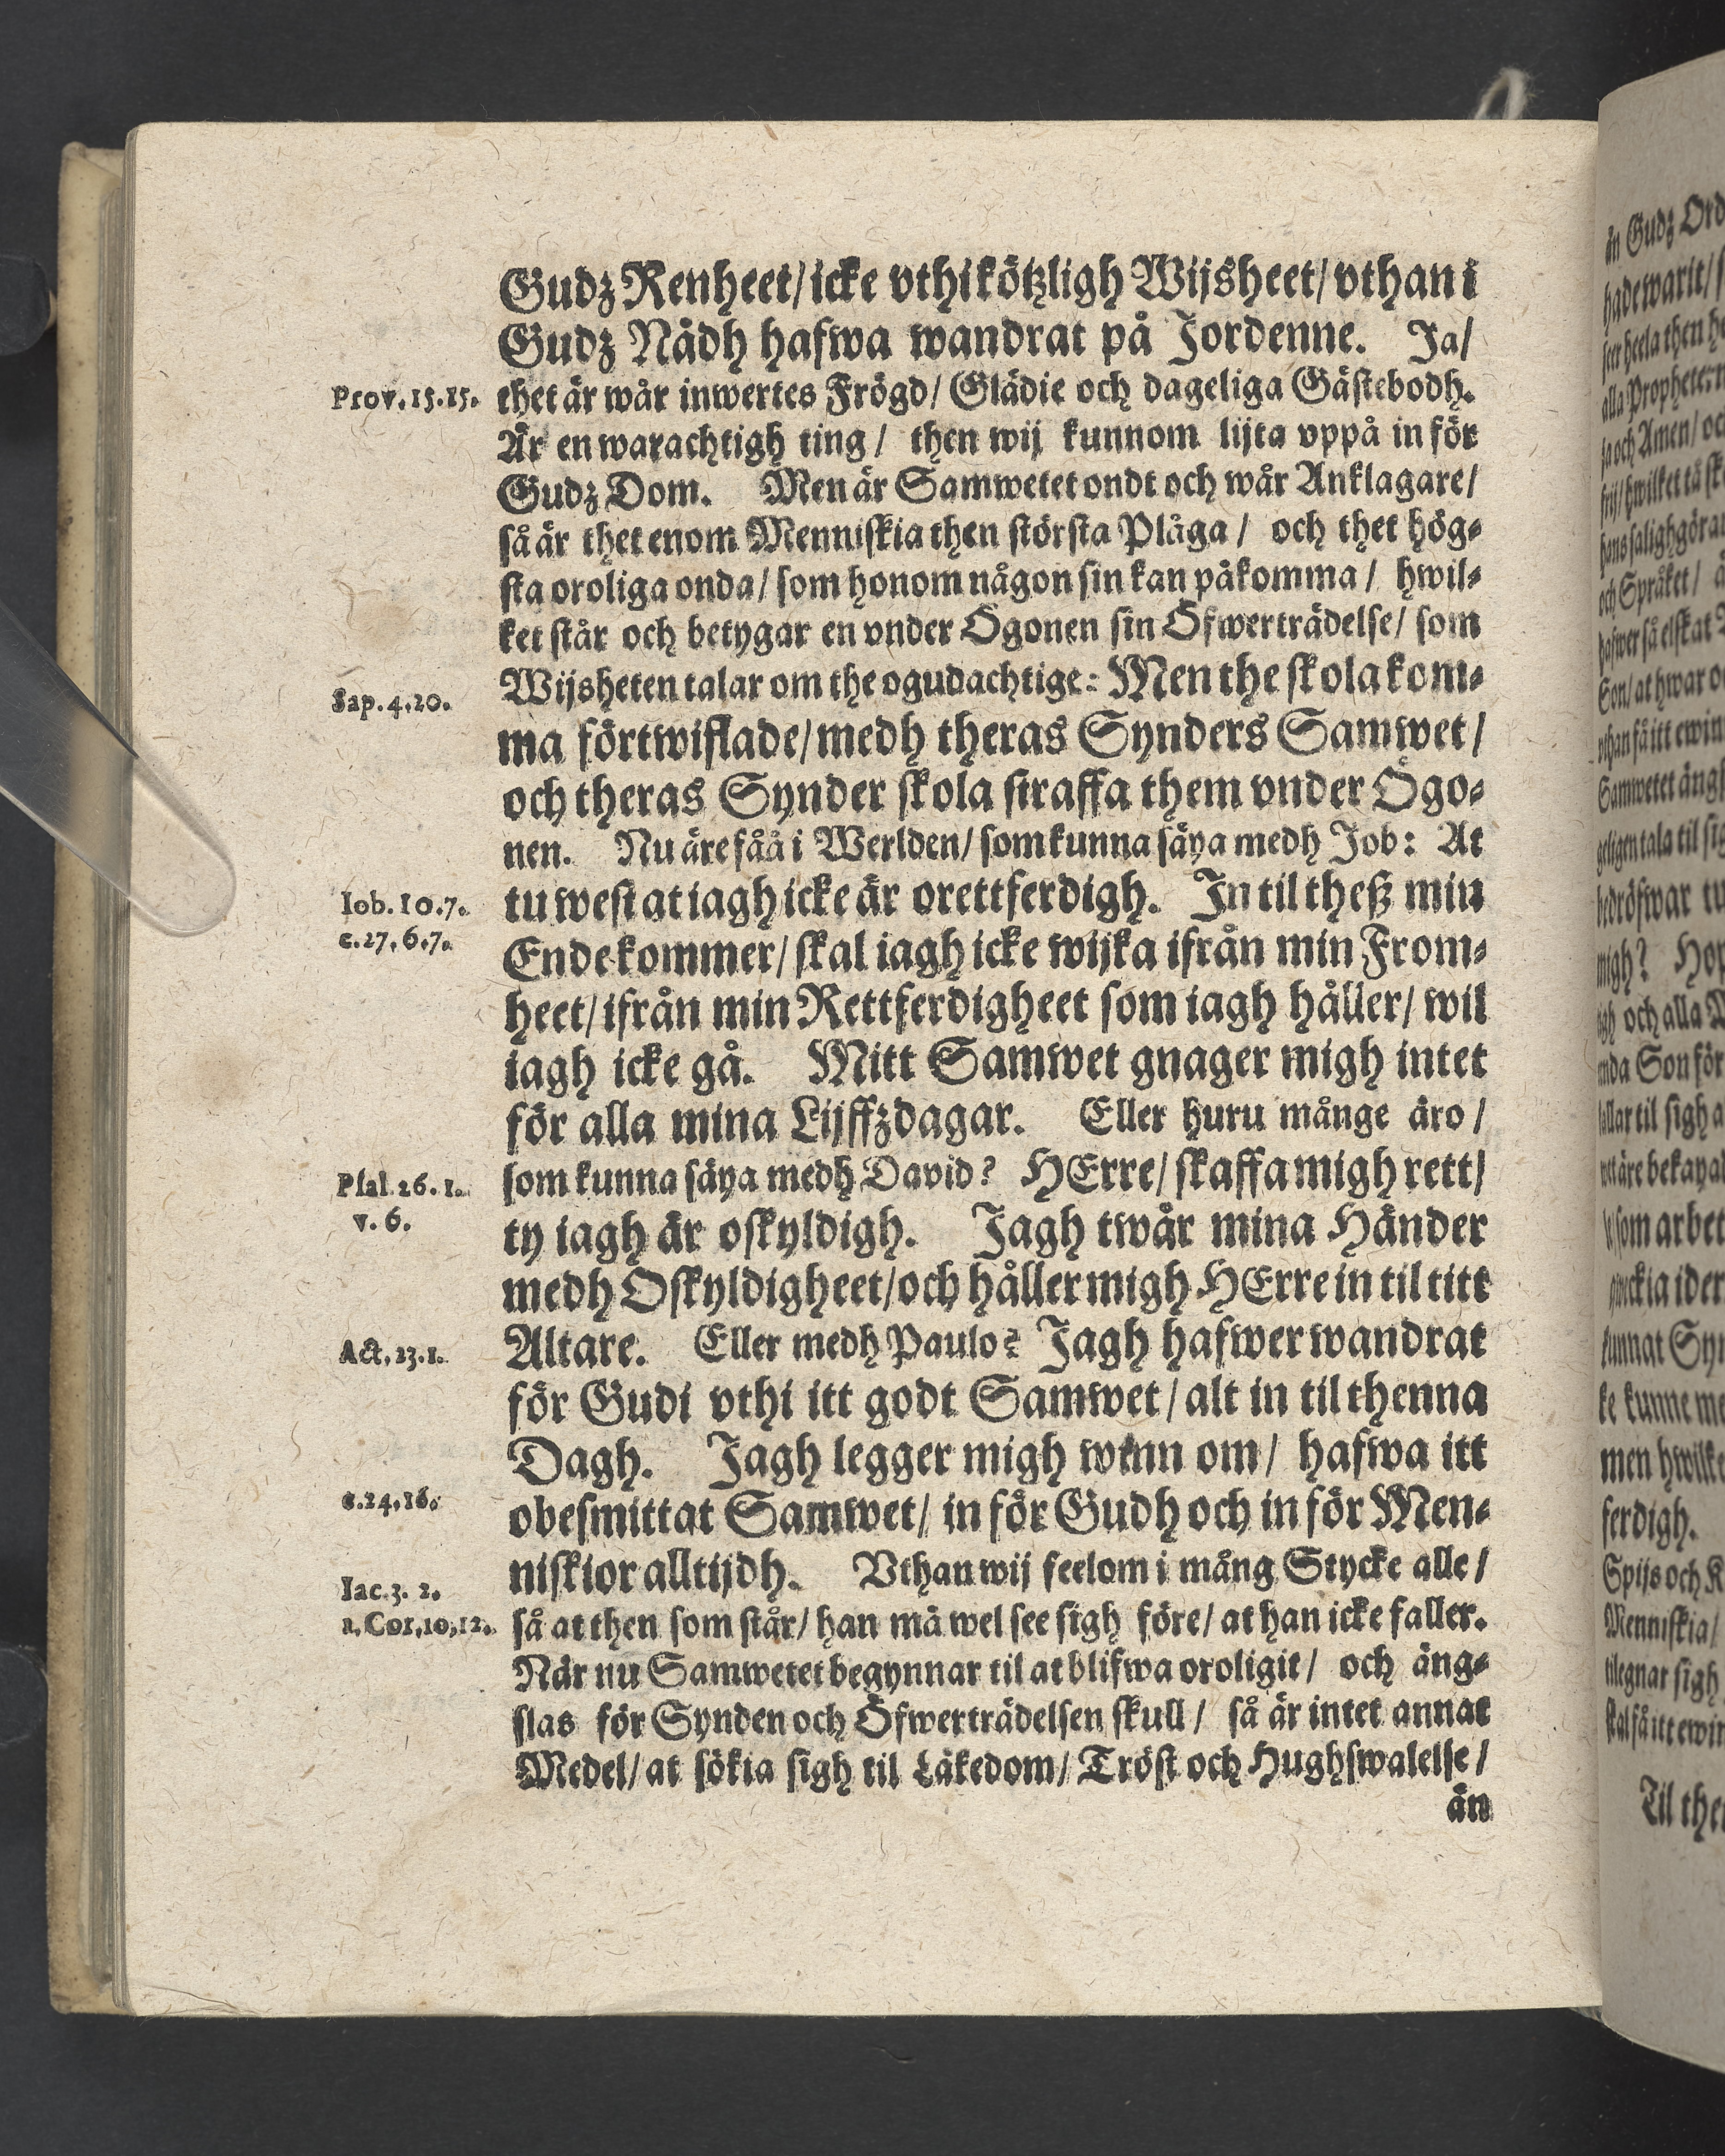 Gudz Renheet/ icke vthi kötzligh Wijsheet/ vthan i
Gudz Nådh hafwa wandrat på Jordenne. Ja/
Prov. 15. 15. thet är wår inwertes Frögd/ Glädie och dageliga Gästebodh.
Är en warachtigh ting/ then wij kunnom lijta vppå in för
Gudz Dom. Men är Samwetet ondt och wår Anklagare/
så är thet enom Menniskia then största Plåga/ och thet hög-
sta oroliga onda/ som honom någon sin kan påkomma/ hwil-
ket står och betygar en vnder Ögonen sin Öfwerträdelse/ som
Sap. 4. 20. Wijsheten talar om the ogudachtige: Men the skola kom-
ma förtwiflade/ medh theras Synders Samwet/
och theras Synder skola straffa them vnder Ögo-
nen. Nu äre fåå i Werlden/ som kunna säya medh Job: At
Iob. 10. 7. tu west at iagh icke är orettferdigh. In til theß min
c. 27. 6. 7. Ende kommer/ skal iagh icke wijka ifrån min From-
heet/ ifrån min Rettferdigheet som iagh håller/ wil
iagh icke gå. Mitt Samwet gnager migh intet
för alla mina Lijffzdagar. Eller huru månge äro/
Psal. 26. 1. som kunna säya medh David? HErre/ skaffa migh rett/
v. 6. ty iagh är oskyldigh. Jagh twår mina Händer
medh Oskyldigheet/ och håller migh HErre in til titt
Act. 23. 1. Altare. Eller medh Paulo? Jagh hafwer wandrat
för Gudi vthi itt godt Samwet/ alt in til thenna
Dagh. Jagh legger migh winn om/ hafwa itt
c. 24. 16. obesmittat Samwet/ in för Gudh och in för Men-
niskior alltijdh. Vthan wij feelom i mång Stycke alle/
Iac. 3. 2.
1. Cor. 10, 12. så at then som står/ han må wel see sigh före/ at han icke faller.
När nu Samwetet begynnar til at blifwa oroligit/ och äng-
slas för Synden och Öfwerträdelsen skull/ så är intet annat
Medel/ at sökia sigh til Läkedom/ Tröst och Hughswalelse/
än